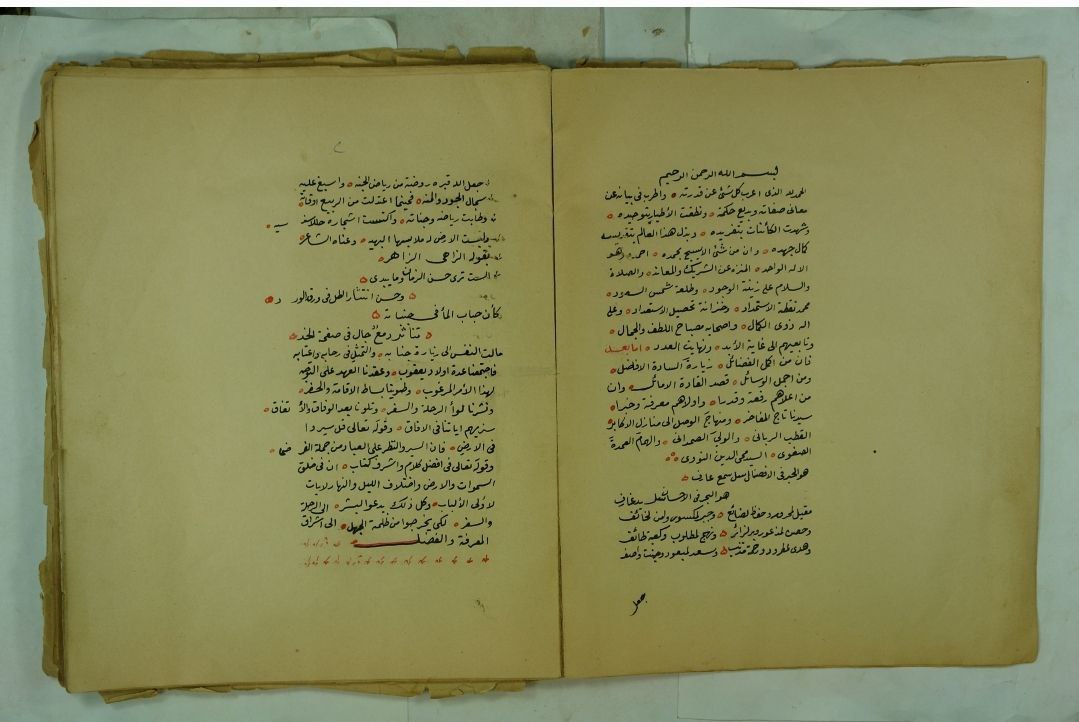 بسم الله الرحمن الرحيم
الحمد لله الذى اعرب كل شئ عن قدرته ٥ واطرب فى بيانه عن
معانى صفاته وبديع حكمته ٥ ونطقت الأطيار بتوحيده ٥
وشهدت الكائنات بتفريده ٥ وبذل هذا العالم بتقديسه
كمال جهده ٥ وان من شئ الا يسبح بحمده ٥ احمده وهو
الاله الواحد ٥ المنزه عن الشريك والمعاند ٥ والصلاة
والسلام على زينة الوجود ٥ وطلعة شمس السعود ٥
محمد نقطة الاستمداد ٥ وخزانة تحصيل الاستعداد ٥ وعلى
اله ذوى الكمال ٥ واصحابه مصباح اللطف والجمال ٥
وتابعيهم الى غاية الأبد ٥ ونهايت العدد ٥ اما بعد
فان من اكمل الفضائل ٥ زيارة السادة الافاضل ٥
ومن اجمل الوسائل ٥ قصد القادة الاماثل ٥ وان
من اعلاهم رفعة وقدرا ٥ واولاهم معرفة وخبرا ٥
سيدنا تاج المفاخر ٥ ومنهاج الوصل الى منازل الاكابر ٥
القطب الربانى ٥ والولى الصمدانى ٥ والهمام العمدة
الصفوى ٥ السيد محيى الدين النووى ٥٥
هو البحر فى الافضال سل سمع عارف ٥
هو البحر فى الاحسان
وحصن لمذعور وبر لزائر ٥ ونهج لمطلوب وكعبة لطائف
جعل
٢
جعل الله قبره روضة من رياض الجنه ٥ واسبغ عليه
سجال الجود والمنه ٥ فحينما اعتدلت من الربيع اوقاته
وطابت رياضه وجناته ٥ واكتست اشجاره حلا سندسيه ٥
ولبست الارض له ملابسها البهيه ٥ وغناه الشاعر
بقوله الزاهى الزاهر ٥
الست ترى حسن الزمان وما يبدى ٥
٥ وحسن انتثار الطل فى ورق الورد ٥
كأن حباب الماء فى جنباته ٥
٥ تناثر دمع جال فى صفحتى الخد ٥
مالت النفس الى زيارة جنابه ٥ والتمثل فى رحابه واعتابه
فاجتمعنا عدة اولاد يعقوب ٥ وعقدنا العهد على التوجه
لهذا الأمر المرغوب ٥ وطوينا بساط الاقامة والحضر ٥
ونشرنا لواء الرحلة والسفر ٥ وتلونا بعد الوفاق والاتفاق ٥
سنريهم اياتنا فى الافاق ٥ وقوله تعالى قل سيروا
فى الارض ٥ فان السير والنظر على العباد من جملة الفرض ٥
وقوله تعالى فى افضل كلام واشرف كتاب ٥ ان فى خلق
السموات والارض واختلاف الليل والنهار لايات
لاولى الألباب ٥ وكل ذلك يدعو البشر ٥ الى الرحلة
والسفر ٥ لكى يخرجوا من ظلمة الجهل ٥ الى اشراق
المعرفة والفضل